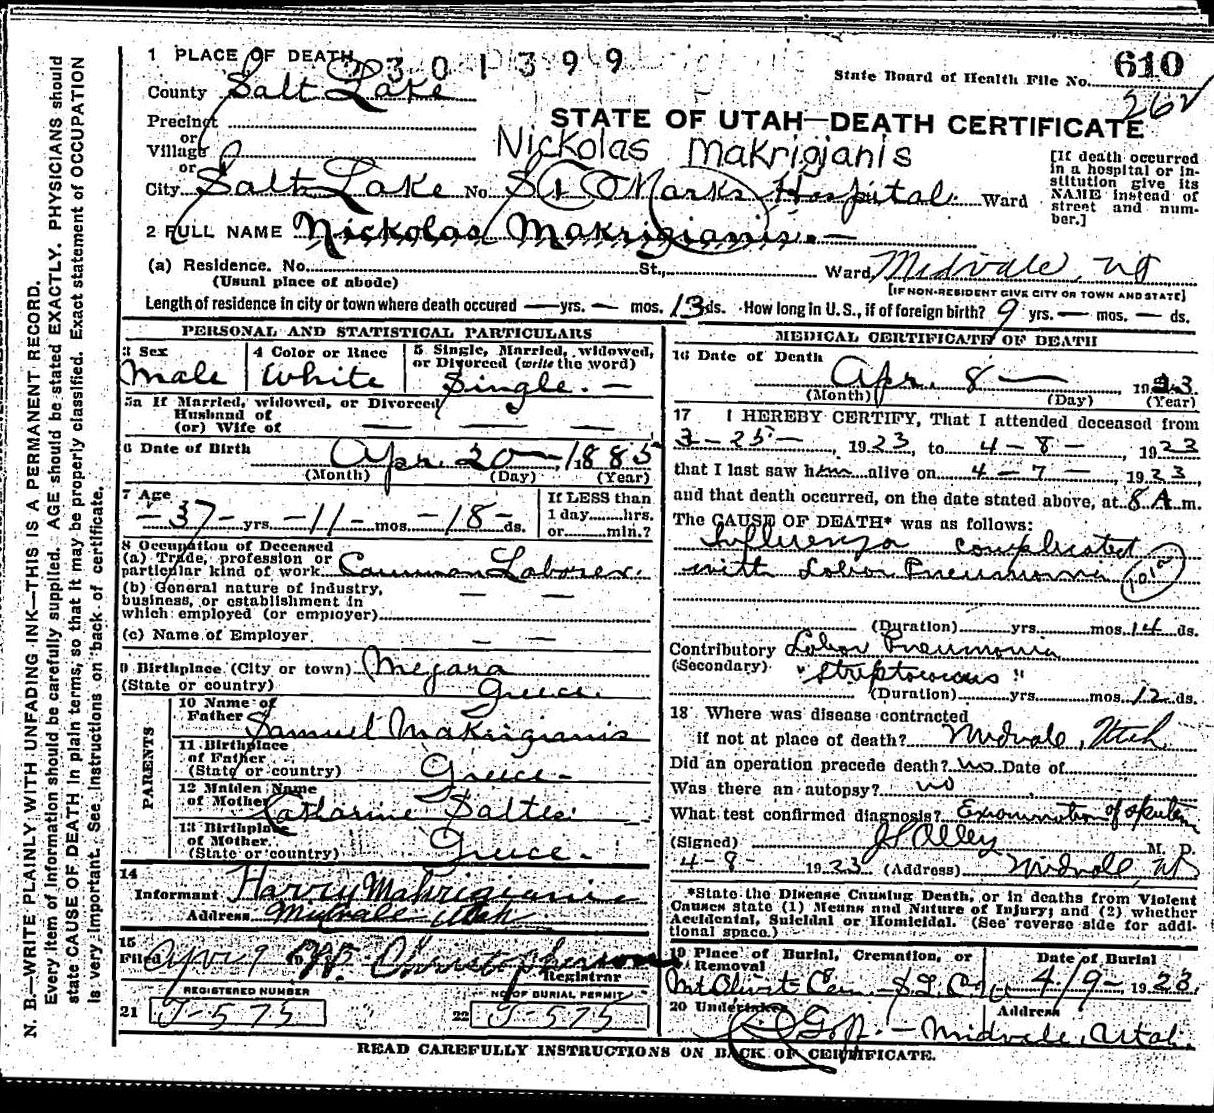 N. B.—WRITE PLAINLY WITH UNFADING INK—THIS IS A PERMANENT RECORD.
Every item of information should be carefully supplied. AGE should be stated EXACTLY. PHYSICIANS should
state CAUSE OF DEATH in plain terms, so that it may be properly classified. Exact statement of OCCUPATION
is very important. See instructions on back of certificate.
1 PLACE OF DEATH 2301399
State Board of Health File No. 610
County Salt Lake
262
Precinct
STATE OF UTAH—DEATH CERTIFICATE
or
Village
Nickolas Makrigianis
or
City Salt Lake No. St Marks Hospital Ward
[If death occurred
in a hospital or in-
stitution give its
NAME instead of
street and num-
ber.]
2 FULL NAME Nickolas Makrigianis.—
(a) Residence. No. St., Ward, Midvale, Ut
(Usual place of abode)
[IF NON-RESIDENT GIVE CITY OR TOWN AND STATE]
Length of residence in city or town where death occured — yrs. — mos. 13 ds. How long in U. S., if of foreign birth? 9 yrs. — mos. — ds.
PERSONAL AND STATISTICAL PARTICULARS
3 Sex
Male
4 Color or Race
White
5 Single, Married, widowed,
or Divorced (write the word)
Single. —
5a If Married, widowed, or Divorced
Husband of
(or) Wife of — — —
6 Date of Birth Apr. 20—, 1885
(Month) (Day) (Year)
7 Age
—37— yrs. —11— mos. —18— ds.
If LESS than
1 day......hrs.
or......min.?
8 Occupation of Deceased
(a) Trade, profession or
particular kind of work Common Laborer.
(b) General nature of industry,
business, or establishment in
which employed (or employer) — —
(c) Name of Employer — —
9 Birthplace (City or town) Megara
(State or country) Greece.
PARENTS
10 Name of
Father Samuel Makrigianis
11 Birthplace
of Father
(State or country) Greece—
12 Maiden Name
of Mother Catharine Saltes
13 Birthplace
of Mother
(State or country) Greece.—
14
Informant Harry Makrigianis
Address Midvale Utah
15
Filed Apr 9 Christopherson
Registrar
REGISTERED NUMBER
21 J-575
NO OF BURIAL PERMIT
22 J-575
MEDICAL CERTIFICATE OF DEATH
16 Date of Death
Apr. 8 — 1923
(Month) (Day) (Year)
17 I HEREBY CERTIFY, That I attended deceased from
3-25-, 1923, to 4-8-, 1923
that I last saw him alive on 4-7-, 1923,
and that death occurred, on the date stated above, at 8 A. m.
The CAUSE OF DEATH* was as follows:
Influenza complicated
with Lobar Pneumonia
(Duration) yrs. mos. 14 ds.
Contributory Lobar Pneumonia
(Secondary) "Streptococcus"
(Duration) yrs. mos. 12 ds.
18 Where was disease contracted
if not at place of death? Midvale, Utah
Did an operation precede death? no Date of
Was there an autopsy? no
What test confirmed diagnosis? Examination of sputum
(Signed) J S Alley M. D.
4-8- 1923 (Address) Midvale, Ut
*State the Disease Causing Death, or in deaths from Violent
Causes state (1) Means and Nature of Injury; and (2) whether
Accidental, Suicidal or Homicidal. (See reverse side for addi-
tional space.)
19 Place of Burial, Cremation, or
Removal
Mt Olivit Cem. - S.L.C.
Date of Burial
4/9- 1923.
20 Undertaker Goff. —
Address
Midvale, Utah.
READ CAREFULLY INSTRUCTIONS ON BACK OF CERTIFICATE.